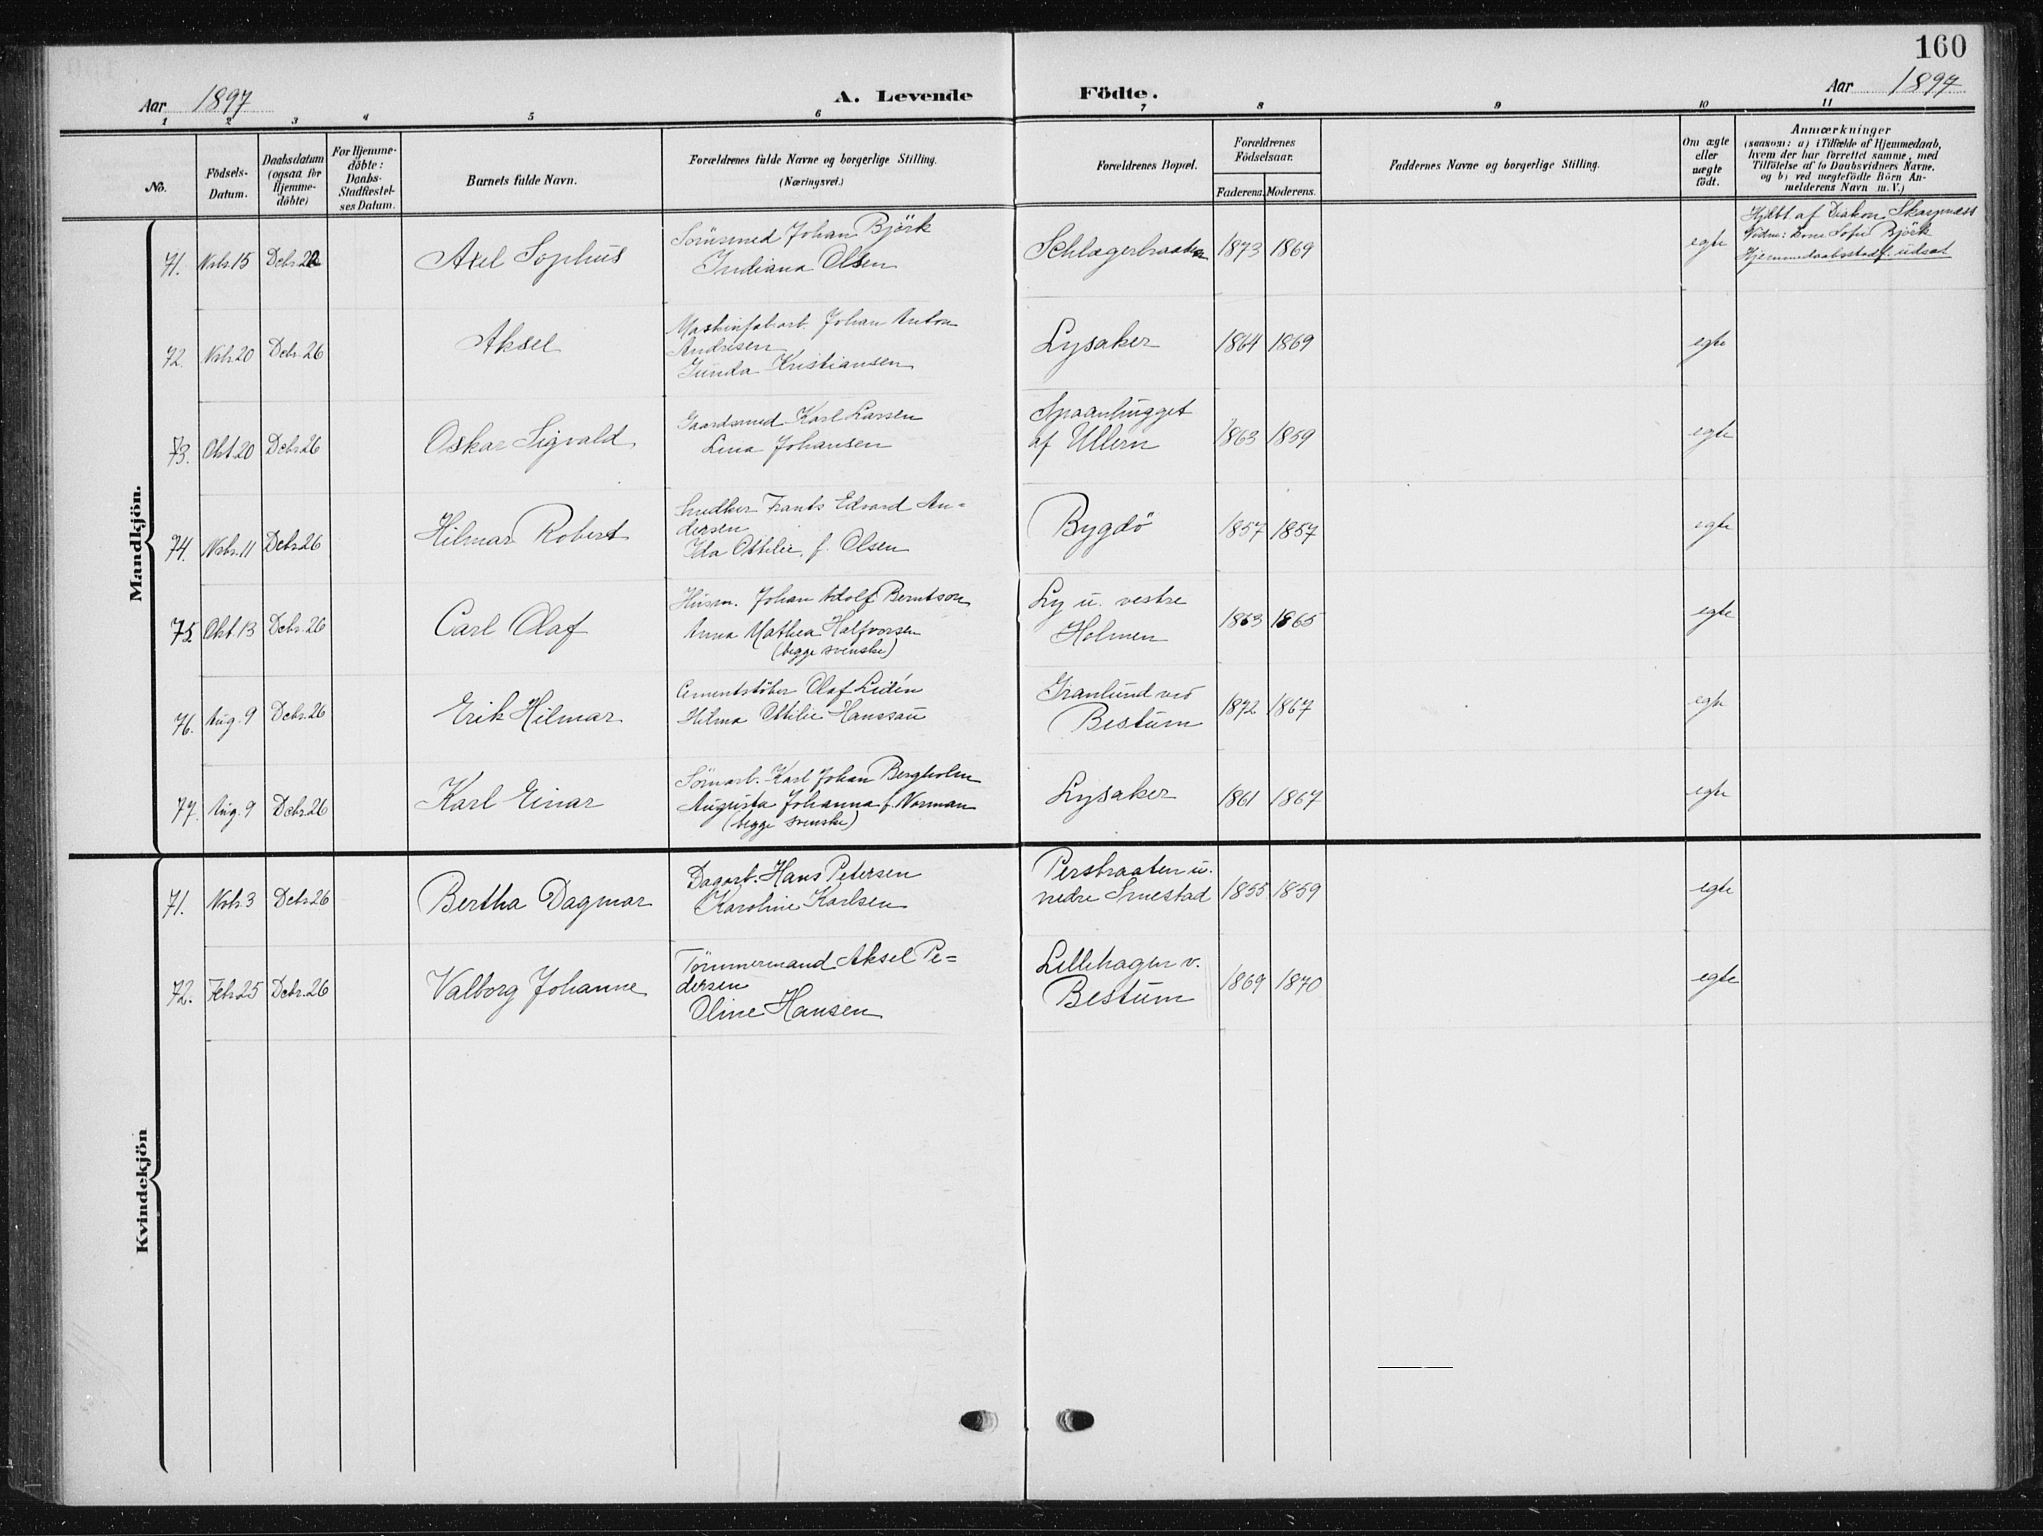 160
Aar 1897
A. Levende Födte.
Aar 1897
1 2 3 4 5 6 7 8 9 10 11
No.
Födsels-Datum.
Daabsdatum (ogsaa for Hjemme-döbte)
For Hjemme-döbte: Daabs-Stadfæstel-ses Datum.
Barnets fulde Navn.
Forældrenes fulde Navne og borgerlige Stilling.
(Næringsvei.)
Forældrenes Bopæl.
Forældrenes Födselsaar.
Faderens. Moderens.
Faddernes Navne og borgerlige Stilling.
Om ægte eller uægte födt.
Anmærkninger
(saasom: a) i Tilfælde af Hjemmedaab,
hvem der har forrettet samme, med
Tilföielse af to Daabsvidners Navne.
og b) ved uægtefödte Börn An-
melderens Navn m. V.)
Mandkjön.
71. Nvbr. 15 Dcbr. 22 Axel Sophus
Johan Björk
Indiana Olsen
1873 1869 egte
Hjdbt af Diakon Skarpnæs
Björk
Hjemmedaabsstadf. udsat
72. Nvbr. 20 Dcbr. 26 Aksel
Johan Anton
Andresen
Kristiansen
Lysaker 1864 1869 egte
73. Okt. 20 Dcbr. 26 Oskar Sigvald
Gaardsmed Karl Larsen
Lina Johansen
Spaanhugget
af Ullern
1863 1859 egte
74. Nvbr. 11 Dcbr. 26 Hilmar Robert
Snedker Frants Edvard An-
dersen
Ida Ottilie f. Olsen
Bygdö 1857 1857 egte
75. Okt. 13 Dcbr. 26 Carl Olaf
Husm. Johan Adolf Berntson
Anna Mathea Halfvorsen
(begge svenske)
Ly u. vestre
Holmen
1863 1865 egte
76. Aug. 9 Dcbr. 26 Erik Hilmar
Cementstöber Olaf Lidén
Hilma Ottilie Hanssau
Granlund ved
Bestum
1872 1867 egte
77. Aug. 9 Dcbr. 26 Karl Einar
Karl Johan Bergholm
Augusta Johanna f. Norman
(begge svenske)
Lysaker 1861 1867 egte
Kvindekjön
71. Nvbr. 3 Dcbr. 26 Bertha Dagmar
Dagarb. Hans Petersen
Karoline Karlsen
Persbraaten u.
nedre Smestad
1855 1859 egte
72. Febr. 25 Dcbr. 26 Valborg Johanne
Tömmermand Aksel Pe-
dersen
Oline Hansen
Lillehagen v.
Bestum
1869 1870 egte